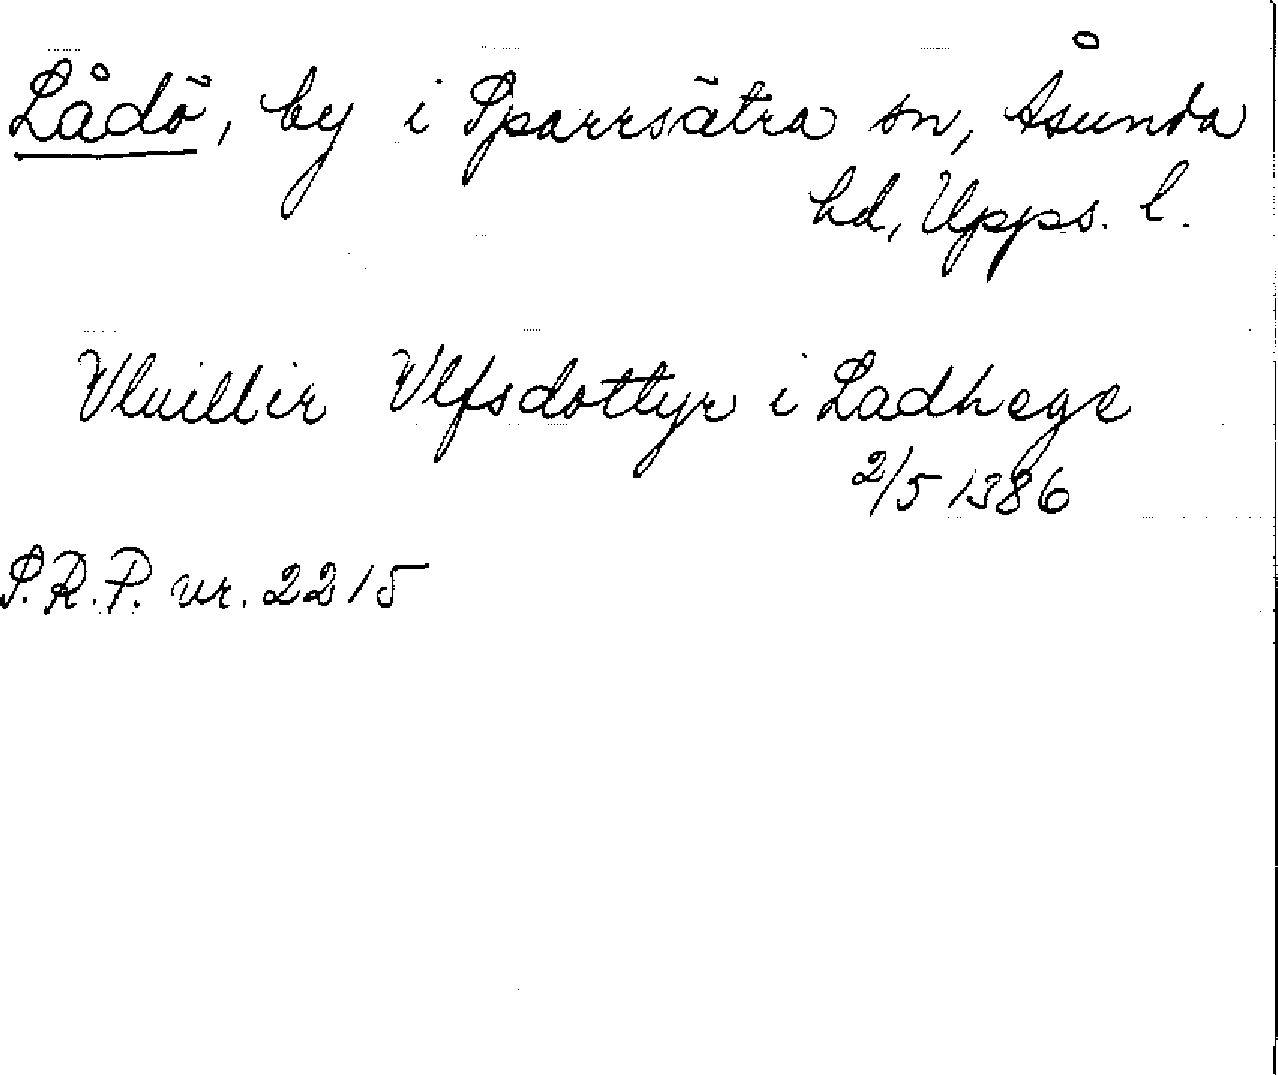 Lådö, by i Sparrsätra sn, Åsunda
hd, Upps. l.
Vlfsdottyr i Ladhege
2/5 1386
S.R.P. nr. 2215